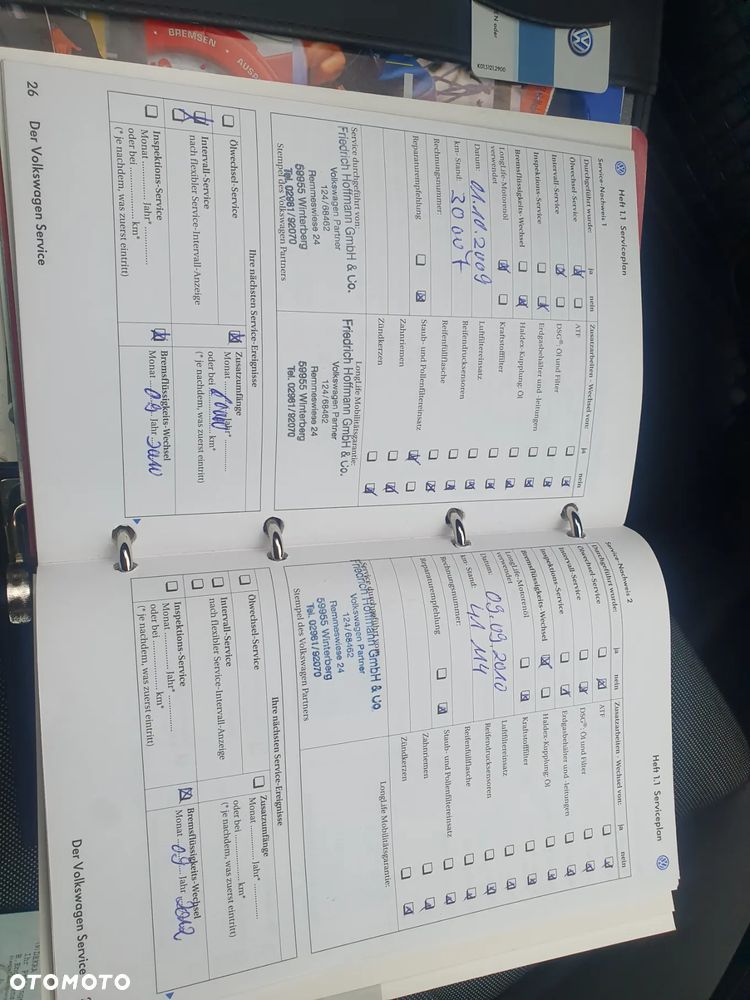 BREMSEN
AUSP
N oder
26
Der Volkswagen Service
Heft 1.1 Serviceplan
Service-Nachweis 1
Durchgeführt wurde:
ja
nein
Ölwechsel-Service
Intervall-Service
Inspektions-Service
Bremsflüssigkeits-Wechsel
LongLife-Motorenöl
verwendet
Datum: 01.10.2009
km-Stand:
Rechnungsnummer:
Reparaturempfehlung
Zusatzarbeiten - Wechsel von:
ja
nein
ATF
DSG®-Öl und Filter
Erdgasbehälter und -leitungen
Haldex-Kupplung: Öl
Kraftstofffilter
Luftfiltereinsatz
Reifendrucksensoren
Reifenfüllflasche
Staub- und Pollenfiltereinsatz
Zahnriemen
Zündkerzen
Service durchgeführt von:
Friedrich Hoffmann GmbH & Co.
Volkswagen Partner
124/68462
Remmeswiese 24
59955 Winterberg
Tel. 02981/92070
Stempel des Volkswagen Partners
LongLife Mobilitätsgarantie:
Friedrich Hoffmann GmbH & Co.
Volkswagen Partner
124/68462
Remmeswiese 24
59955 Winterberg
Tel. 02981/92070
Ihre nächsten Service-Ereignisse
Ölwechsel-Service
Intervall-Service
nach flexibler Service-Intervall-Anzeige
Inspektions-Service
Monat ............ Jahr* ............
oder bei .................... km*
(* je nachdem, was zuerst eintritt)
Zusatzumfänge
Monat ............ Jahr* ............
oder bei .................... km*
(* je nachdem, was zuerst eintritt)
Bremsflüssigkeits-Wechsel
Monat Jahr
Heft 1.1 Serviceplan
Service-Nachweis 2
Durchgeführt wurde:
ja
nein
Ölwechsel-Service
Intervall-Service
Inspektions-Service
Bremsflüssigkeits-Wechsel
LongLife-Motorenöl
verwendet
Datum: 09.09.2010
km-Stand: 41 114
Rechnungsnummer:
Reparaturempfehlung
Zusatzarbeiten - Wechsel von:
ja
nein
ATF
DSG®-Öl und Filter
Erdgasbehälter und -leitungen
Haldex-Kupplung: Öl
Kraftstofffilter
Luftfiltereinsatz
Reifendrucksensoren
Reifenfüllflasche
Staub- und Pollenfiltereinsatz
Zahnriemen
Zündkerzen
Service durchgeführt von:
Friedrich Hoffmann GmbH & Co
Volkswagen Partner
124/68462
Remmeswiese 24
59955 Winterberg
Tel. 02981/92070
Stempel des Volkswagen Partners
LongLife Mobilitätsgarantie:
Ihre nächsten Service-Ereignisse
Ölwechsel-Service
Intervall-Service
nach flexibler Service-Intervall-Anzeige
Inspektions-Service
Monat ............ Jahr* ............
oder bei .................... km*
(* je nachdem, was zuerst eintritt)
Zusatzumfänge
Monat ............ Jahr* ............
oder bei .................... km*
(* je nachdem, was zuerst eintritt)
Bremsflüssigkeits-Wechsel
Monat 09 Jahr 2012
Der Volkswagen Service
OTOMOTO